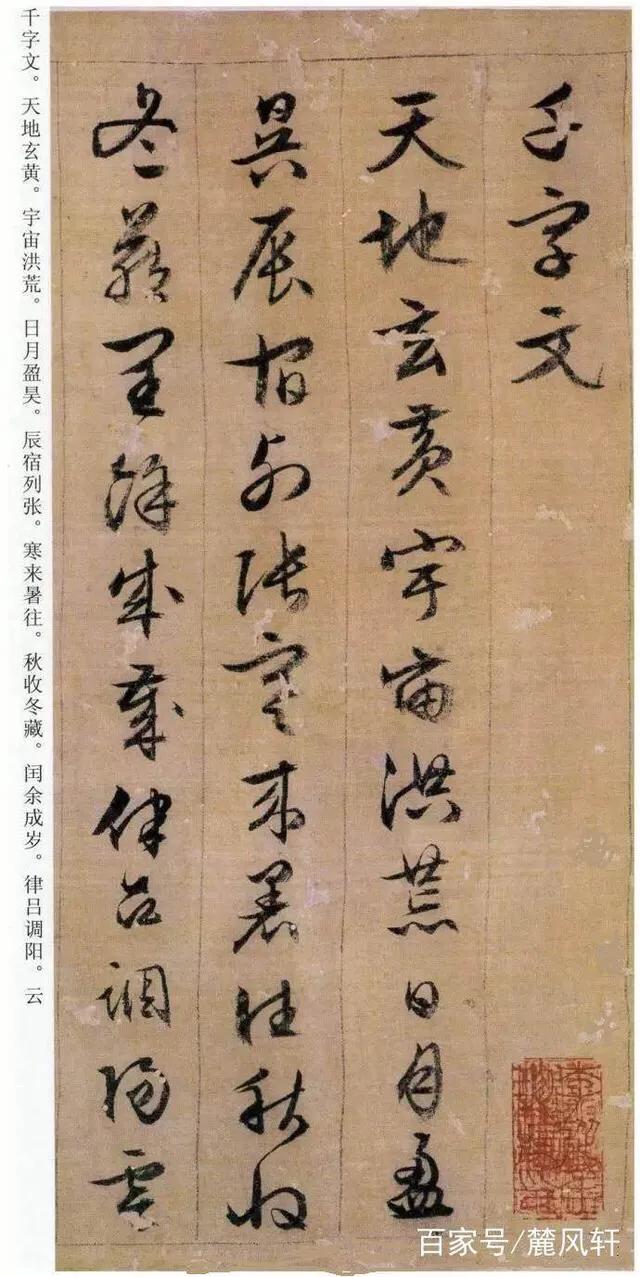 千字文
天地玄黃宇宙洪荒日月盈
昃辰宿列張寒来暑往秋收
冬藏閏餘成歲律呂調陽雲
千字文。天地玄黄。宇宙洪荒。日月盈昊。辰宿列张。寒来暑往。秋收冬藏。闰余成岁。律吕调阳。云
百家号/麓风轩